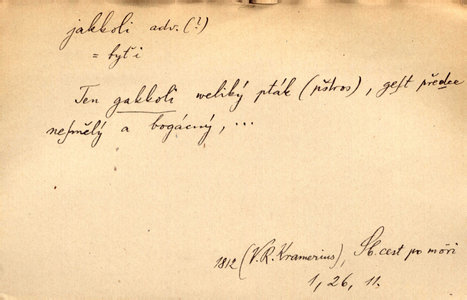 jakkoli adv. (?)
= byť i
Ten gakkoli weliký pták (pštros), gest předce
nesmělý a bogácný, ...
1812 (V. R. Kramerius), Sb. cest po moři
1, 26, 11.